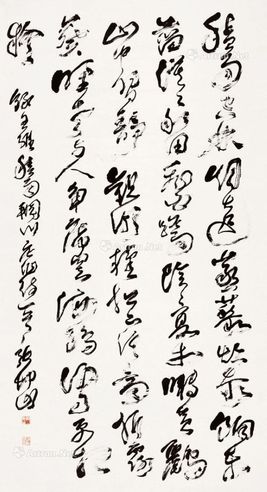 積雨空林煙火遲蒸藜炊黍餉東
菑漠漠水田飛白鷺陰陰夏木囀黃鸝
山中習靜觀朝槿松下清齋折露
葵野老與人爭席罷海鷗何事更相
疑 錄王維積雨輞川庄作詩一首 張坤山